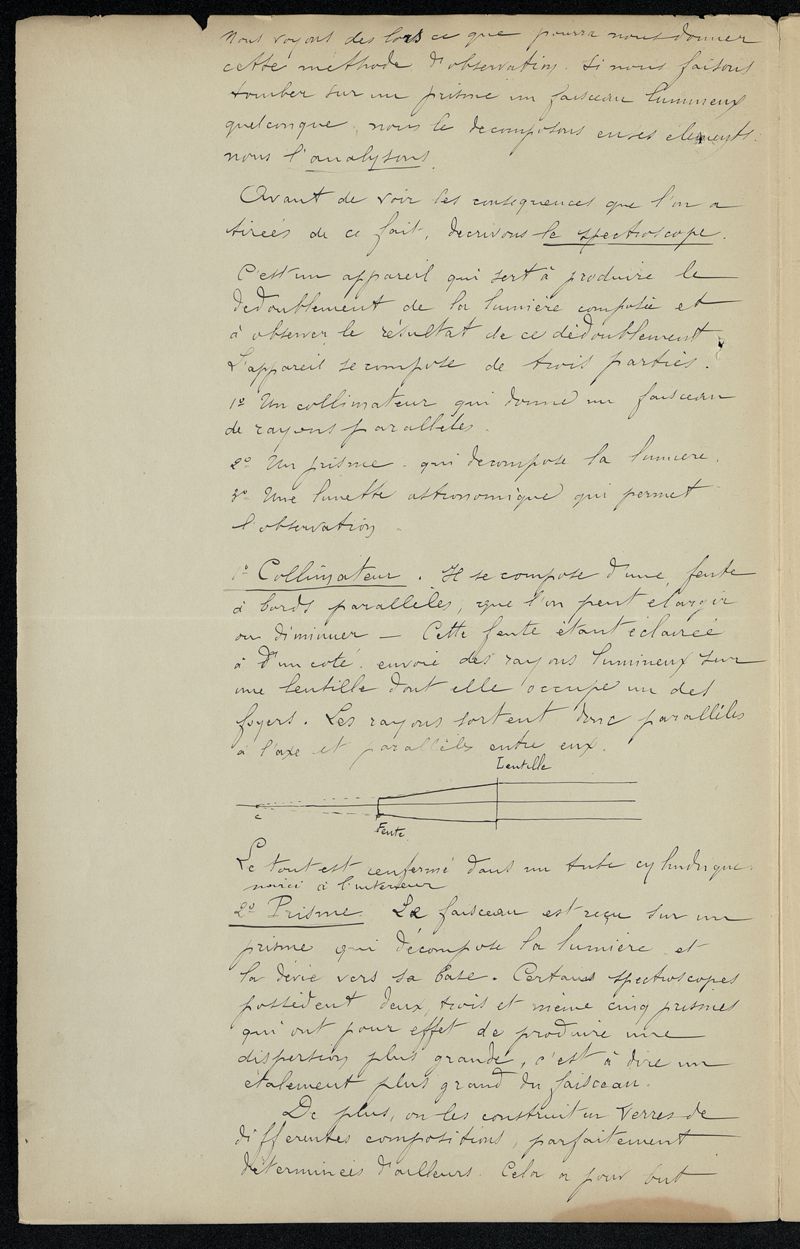 Nous voyons des lors ce que pourra nous donner
cette methode d'observation. Si nous faisons
tomber sur un prisme un faisceau lumineux
quelconque, nous le decomposons en ses elements.
nous l'analysons.
Avant de voir les consequences que l'on a
tirées de ce fait, decrivons le spectroscope.
C'est un appareil qui sert à produire le
dedoublement de la lumière composée et
à observer le résultat de ce dédoublement.
L'appareil se compose de trois parties.
1º Un collimateur qui donne un faisceau
de rayons parallèles.
2º Un prisme qui decompose la lumiere.
3º Une lunette astronomique qui permet
l'observation.
1º Collimateur. Il se compose d'une fente
à bords parallèles, que l'on peut elargir
ou diminuer — Cette fente étant éclairée
à d'un coté envoie des rayons lumineux sur
une lentille dont elle occupe un des
foyers. Les rayons sortent donc parallèles
à l'axe et parallèles entre eux.
Lentille
Fente
Le tout est renfermé dans un tube cylindrique
noirci à l'interieur
2º Prisme. Le faisceau est reçu sur un
prisme qui décompose la lumière et
la dévie vers sa base. Certains spectroscopes
possèdent deux, trois et même cinq prismes
qui ont pour effet de produire une
dispersion plus grande, c'est à dire un
étalement plus grand du faisceau.
De plus, on les construit en verres de
differentes compositions, parfaitement
déterminées d'ailleurs. Cela a pour but